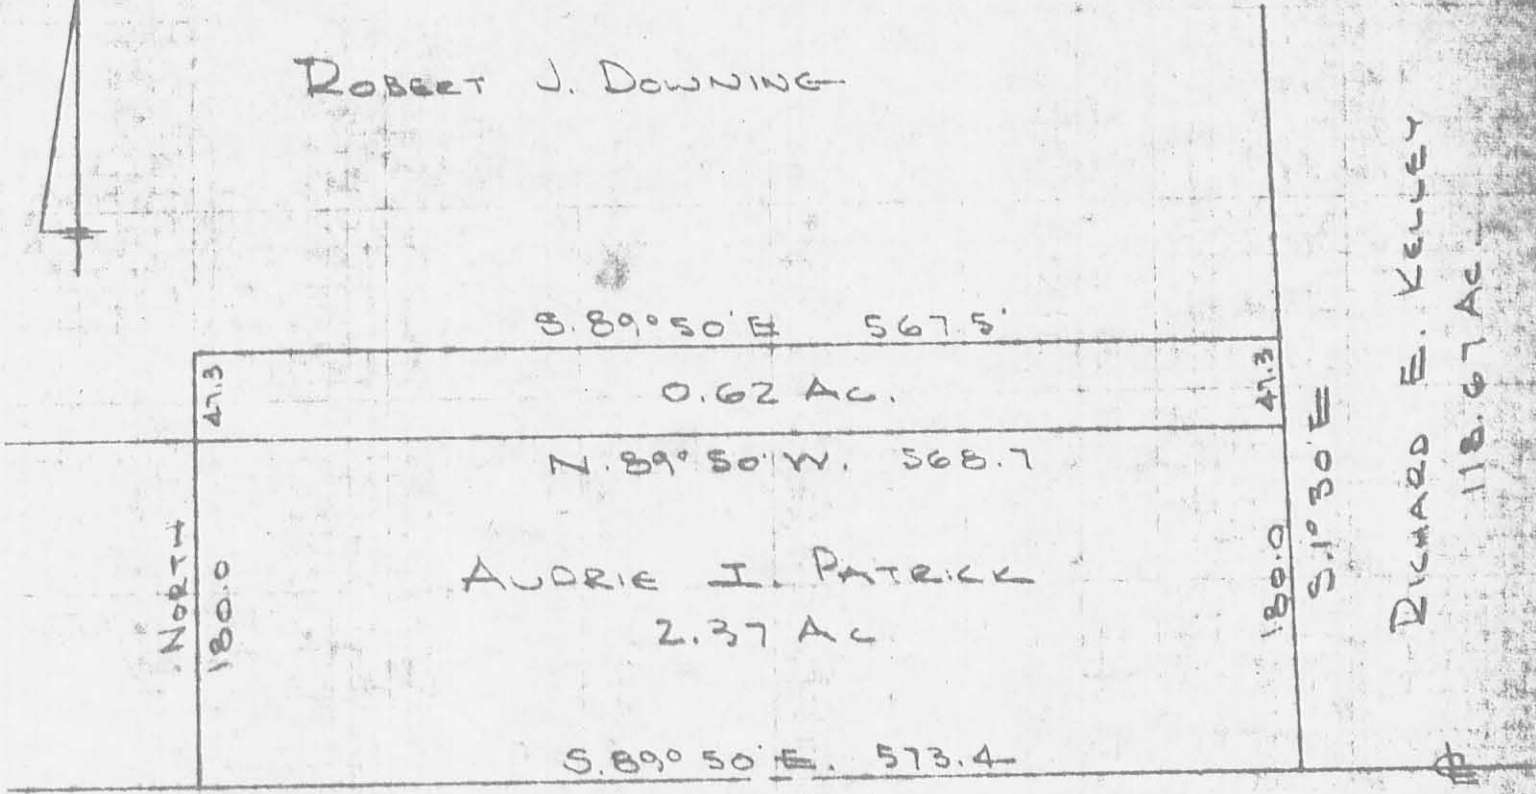 ROBERT J. DOWNING
S. 89° 50' E 567.5'
47.3
0.62 AC.
47.3
N. 89° 50' W. 568.7
NORTH
180.0
AUDRIE I. PATRICK
2.37 AC
180.0
S. 1° 30' E
RICHARD E. KELLEY
118.67 AC
S. 89° 50' E. 573.4
℄